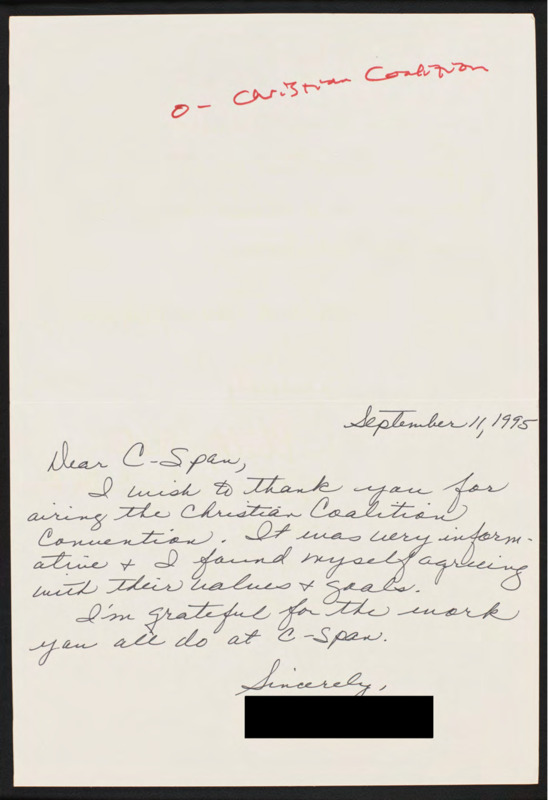 O - Christian Coalition
September 11, 1995
Dear C-Span,
I wish to thank you for
airing the Christian Coalition
Convention. It was very inform-
ative + I found myself agreeing
with their values + goals.
I'm grateful for the work
you all do at C-Span.
Sincerely,